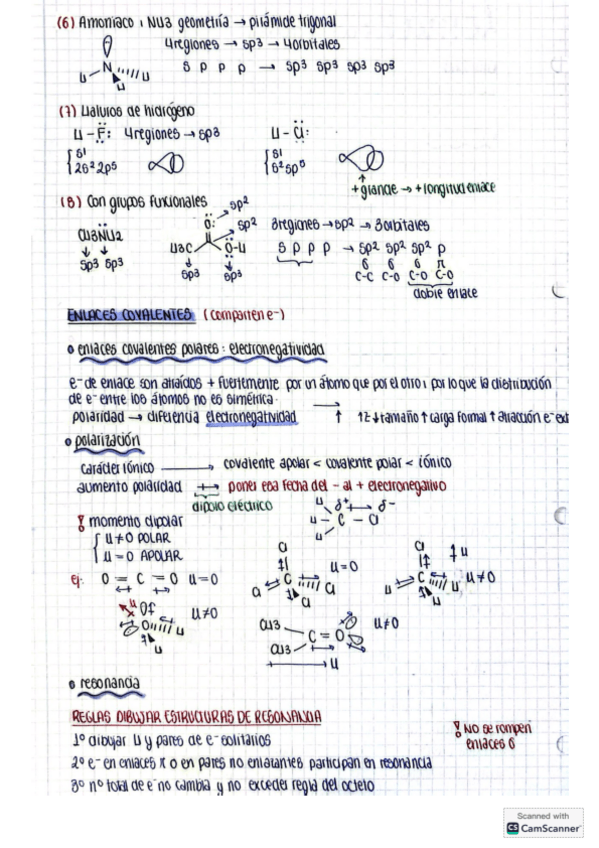 (6) Amoniaco, NH3 geometría → pirámide trigonal
4regiones → sp3 → 4orbitales
N
H
H
H
s p p p → sp3 sp3 sp3 sp3
(7) Haluros de hidrógeno
H – F: 4regiones → sp3
H – Cl:
{ s1
2s² 2p5
{ s1
s² sp5
+grande → + longitud enlace
(8) Con grupos funcionales
sp2
O:
sp2
3regiones → sp2 → 3orbitales
CH3NH2
sp3 sp3
H3C
O-H
sp3
sp3
s p p p → sp2 sp2 sp2 p
σ σ σ π
C-C C-O C-O C-O
doble enlace
ENLACES COVALENTES (comparten e-)
enlaces covalentes polares: electronegatividad
e- de enlace son atraídos + fuertemente por un átomo que por el otro, por lo que la distribución
de e- entre los átomos no es simétrica.
polaridad → diferencia electronegatividad ↑ ↑Z ↓tamaño ↑ carga formal ↑ atracción e- ext
polarización
carácter iónico → covalente apolar < covalente polar < iónico
aumento polaridad ↦ poner esa flecha del - al + electronegativo
dipolo eléctrico
H
H – C – Cl
H
δ+ δ-
! momento dipolar
{ μ≠0 POLAR
μ=0 APOLAR
ej: O = C = O μ=0
Cl
C
Cl
Cl
μ=0
Cl
C
H
H
μ
μ≠0
μ
O
H
H
μ≠0
CH3
CH3
C = O
μ≠0
μ
resonancia
REGLAS DIBUJAR ESTRUCTURAS DE RESONANCIA
! NO se rompen
enlaces σ
1º dibujar H y pares de e- solitarios
2º e- en enlaces π o en pares no enlazantes participan en resonancia
3º nº total de e- no cambia y no exceder regla del octeto
Scanned with
CS CamScanner